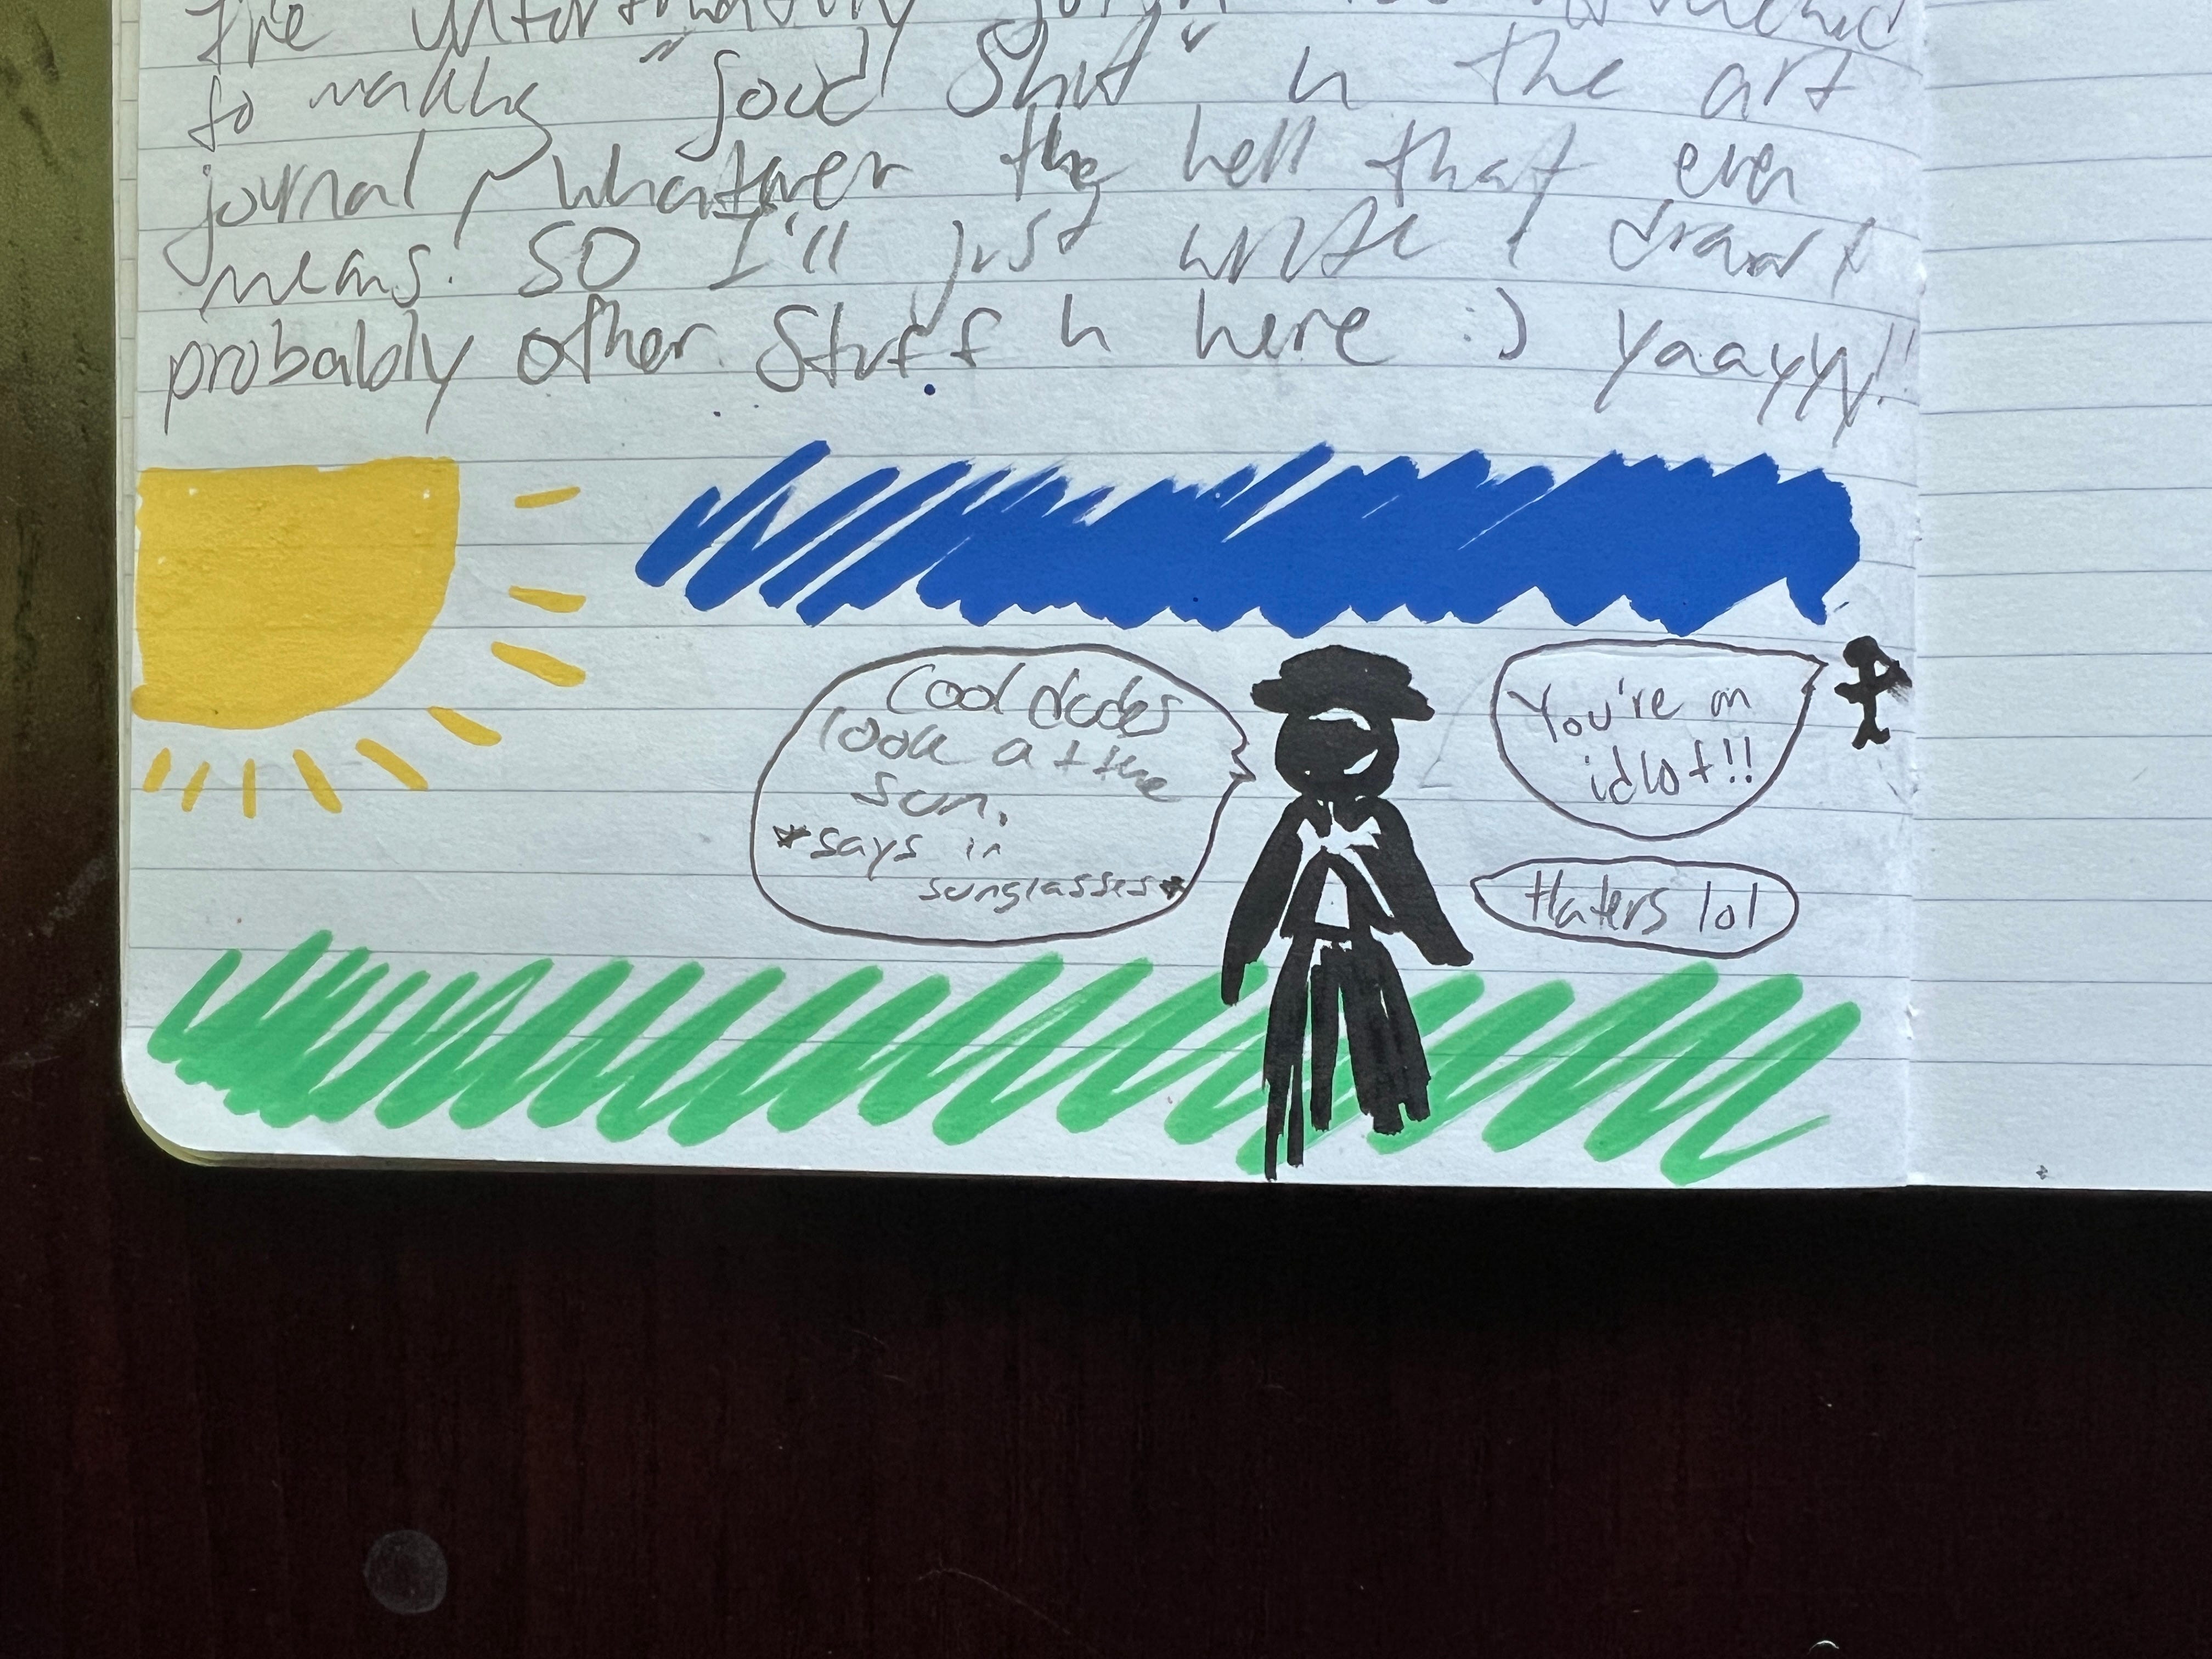 to making "good shit" in the art
journal, whatever the hell that even
means. SO I'll just write & draw &
probably other stuff in here :) Yaayyy!!
Cool dudes
look at the
sun.
*says in
sunglasses*
You're an
idiot!!
Haters lol